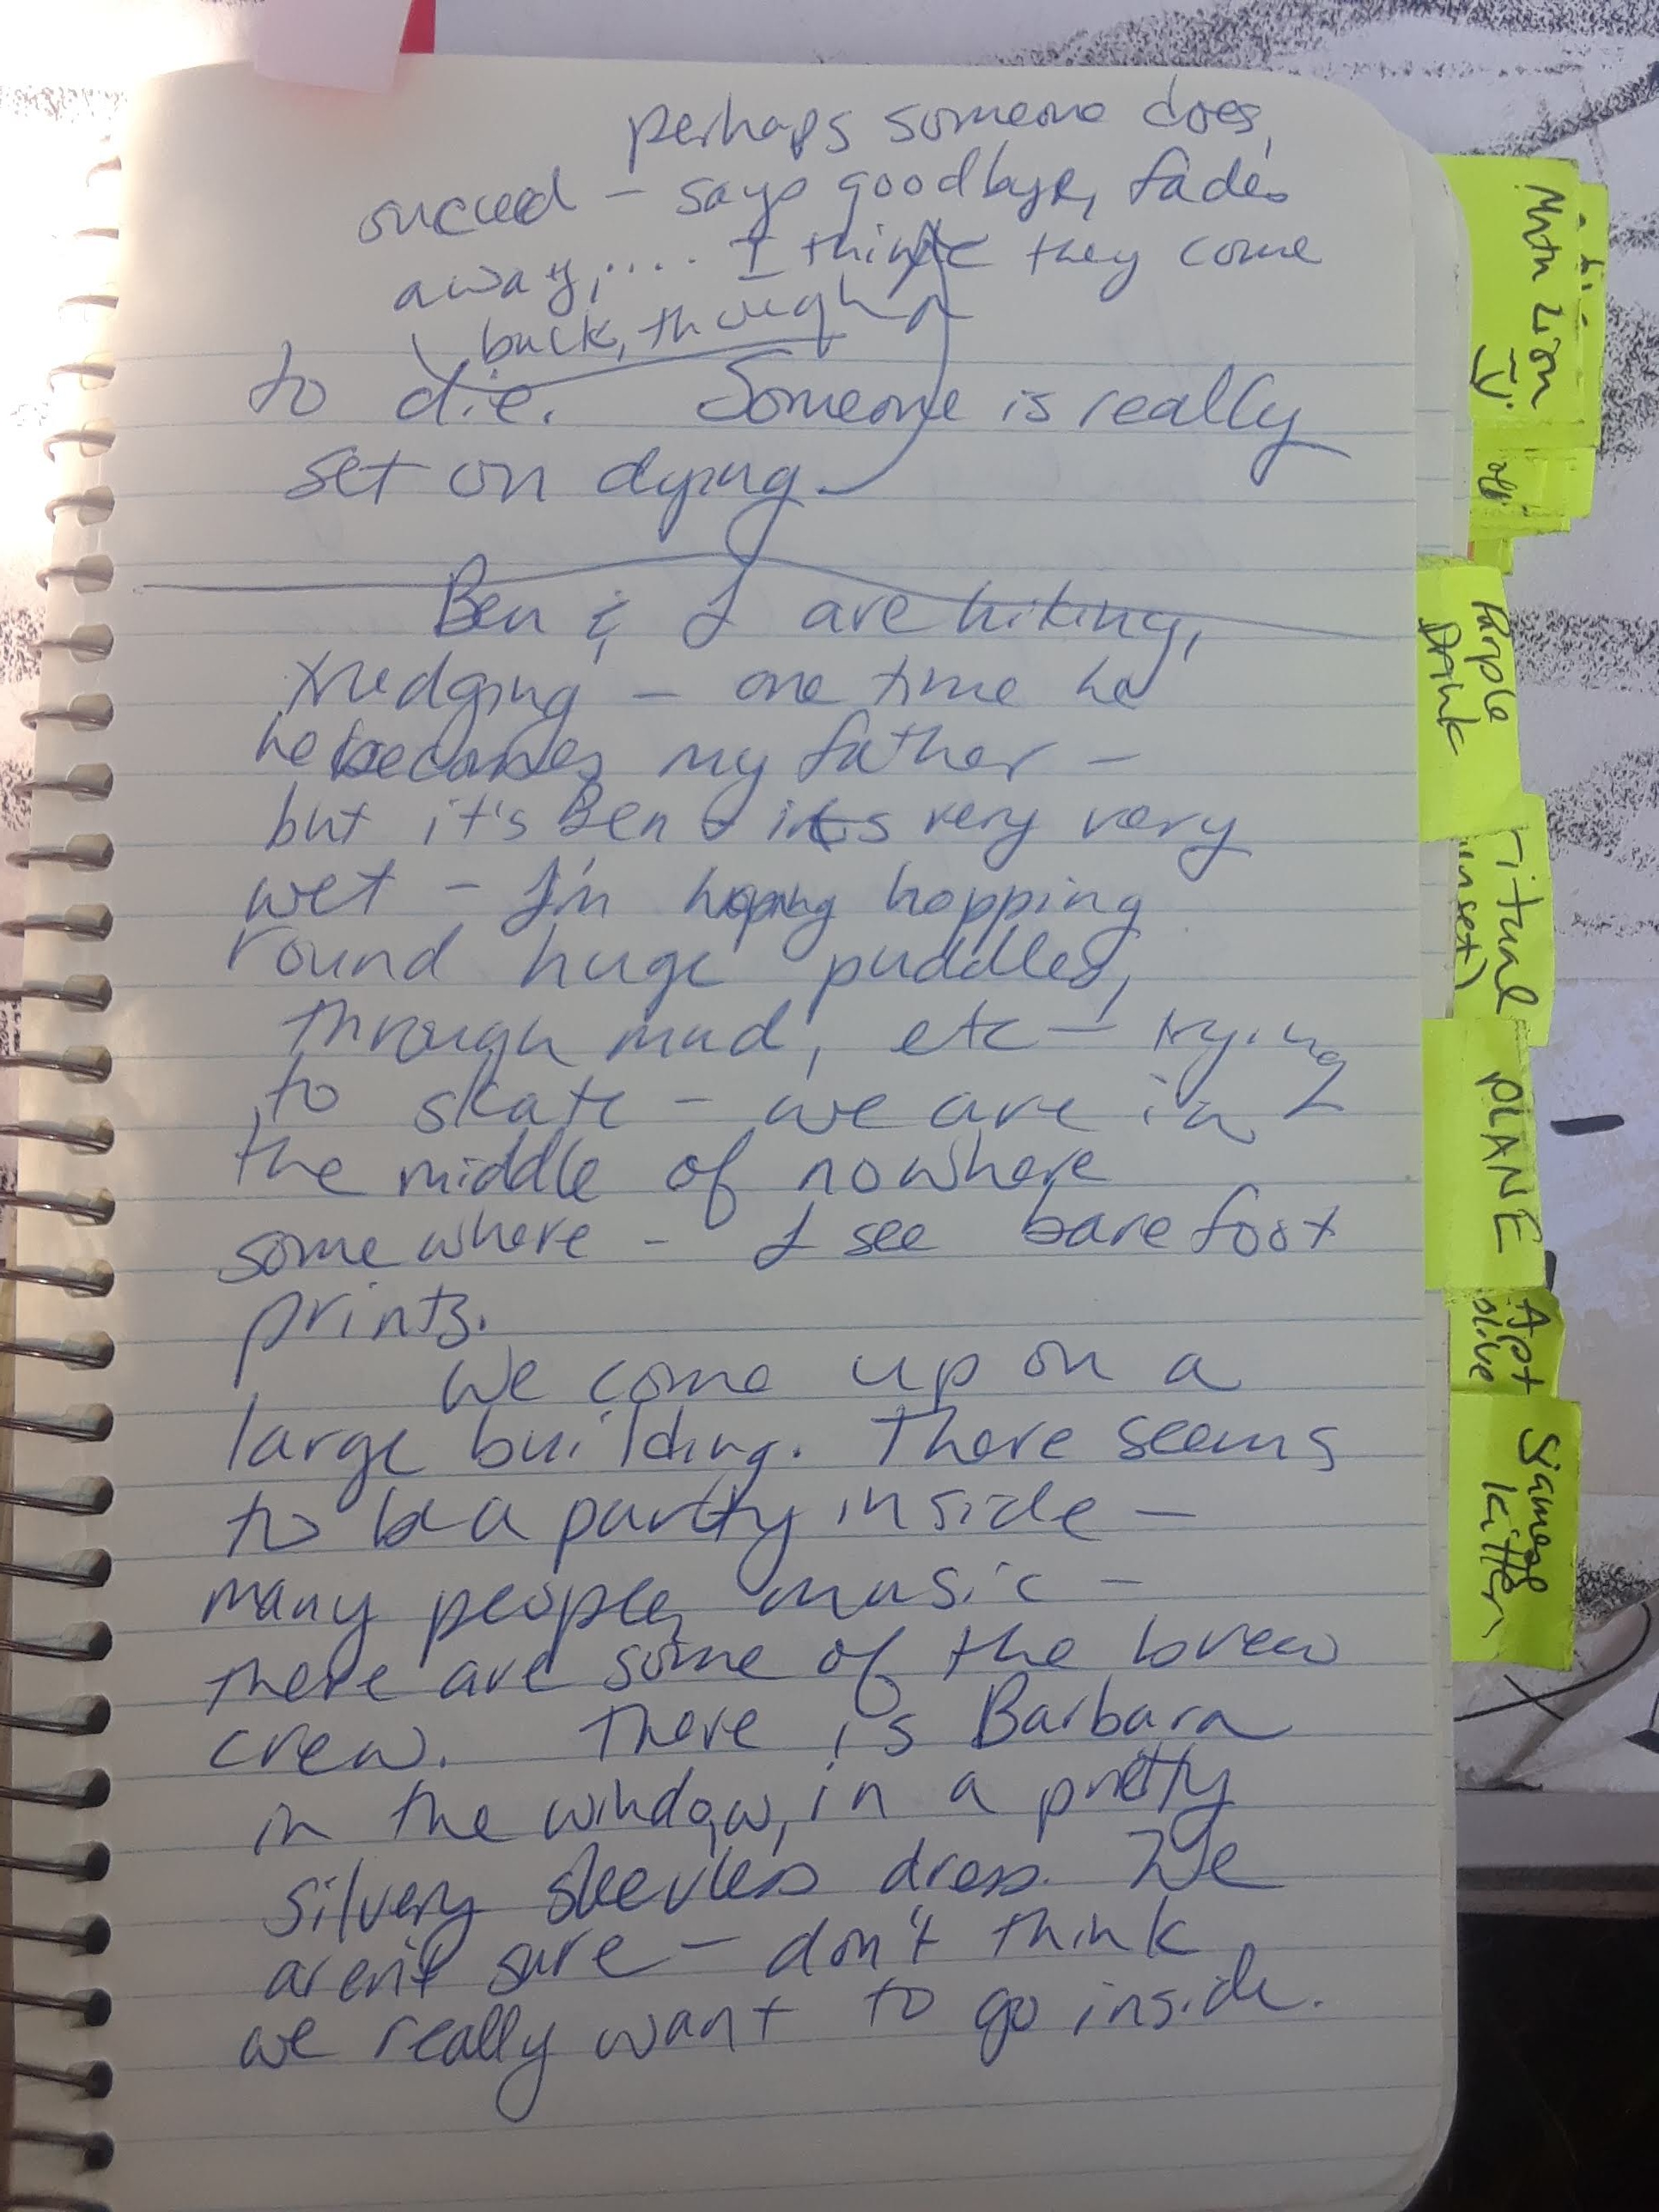 perhaps someone does,
succeed – says goodbye, fades
away,.... I think they come
back, though
to die. Someone is really
set on dying.
Ben & I are hiking,
trudging – one time he
he becomes my father –
but it's Ben & it's very very
wet – I'm hoping hopping
round huge puddles,
through mud, etc – trying
to skate – we are in
the middle of nowhere
somewhere – I see bare foot
prints.
We come up on a
large building. There seems
to be a party inside –
many people, music –
there are some of the brew
crew. There is Barbara
in the window, in a pretty
silvery sleevless dress. We
aren't sure – don't think
we really want to go inside.
Mtn Lion
Purple
Drink
(inset)
PLANE
Apt
olive
Siamese
kitten